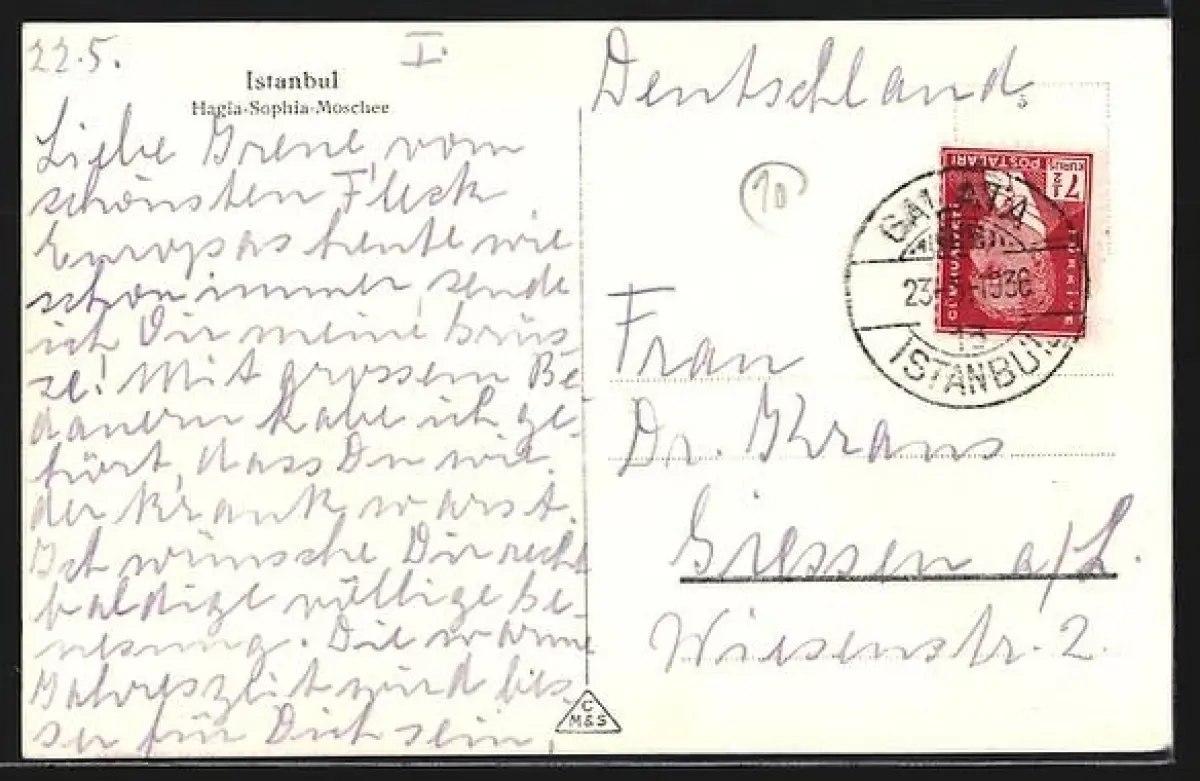 22.5.
I.
Istanbul
Hagia-Sophia-Moschee
Liebe Irene, vom
schönsten Fleck
Europas heute wie
schon immer, sende
ich Dir meine Grüs-
se! Mit grossem Be
dauern habe ich ge-
hört, dass Du wie
der krank warst.
Ich wünsche Dir recht
baldige völlige Ge-
nesung. Die warme
Jahreszeit wird bes-
ser für Dich sein,
C
M&S
Deutschland
10
7½
KURUŞ
POSTALARI
TÜRKİYE
CUMURİYETİ
GALATA
1936
ISTANBUL
Frau
Dr. Kraus
Giessen a/L.
Wiesenstr. 2.